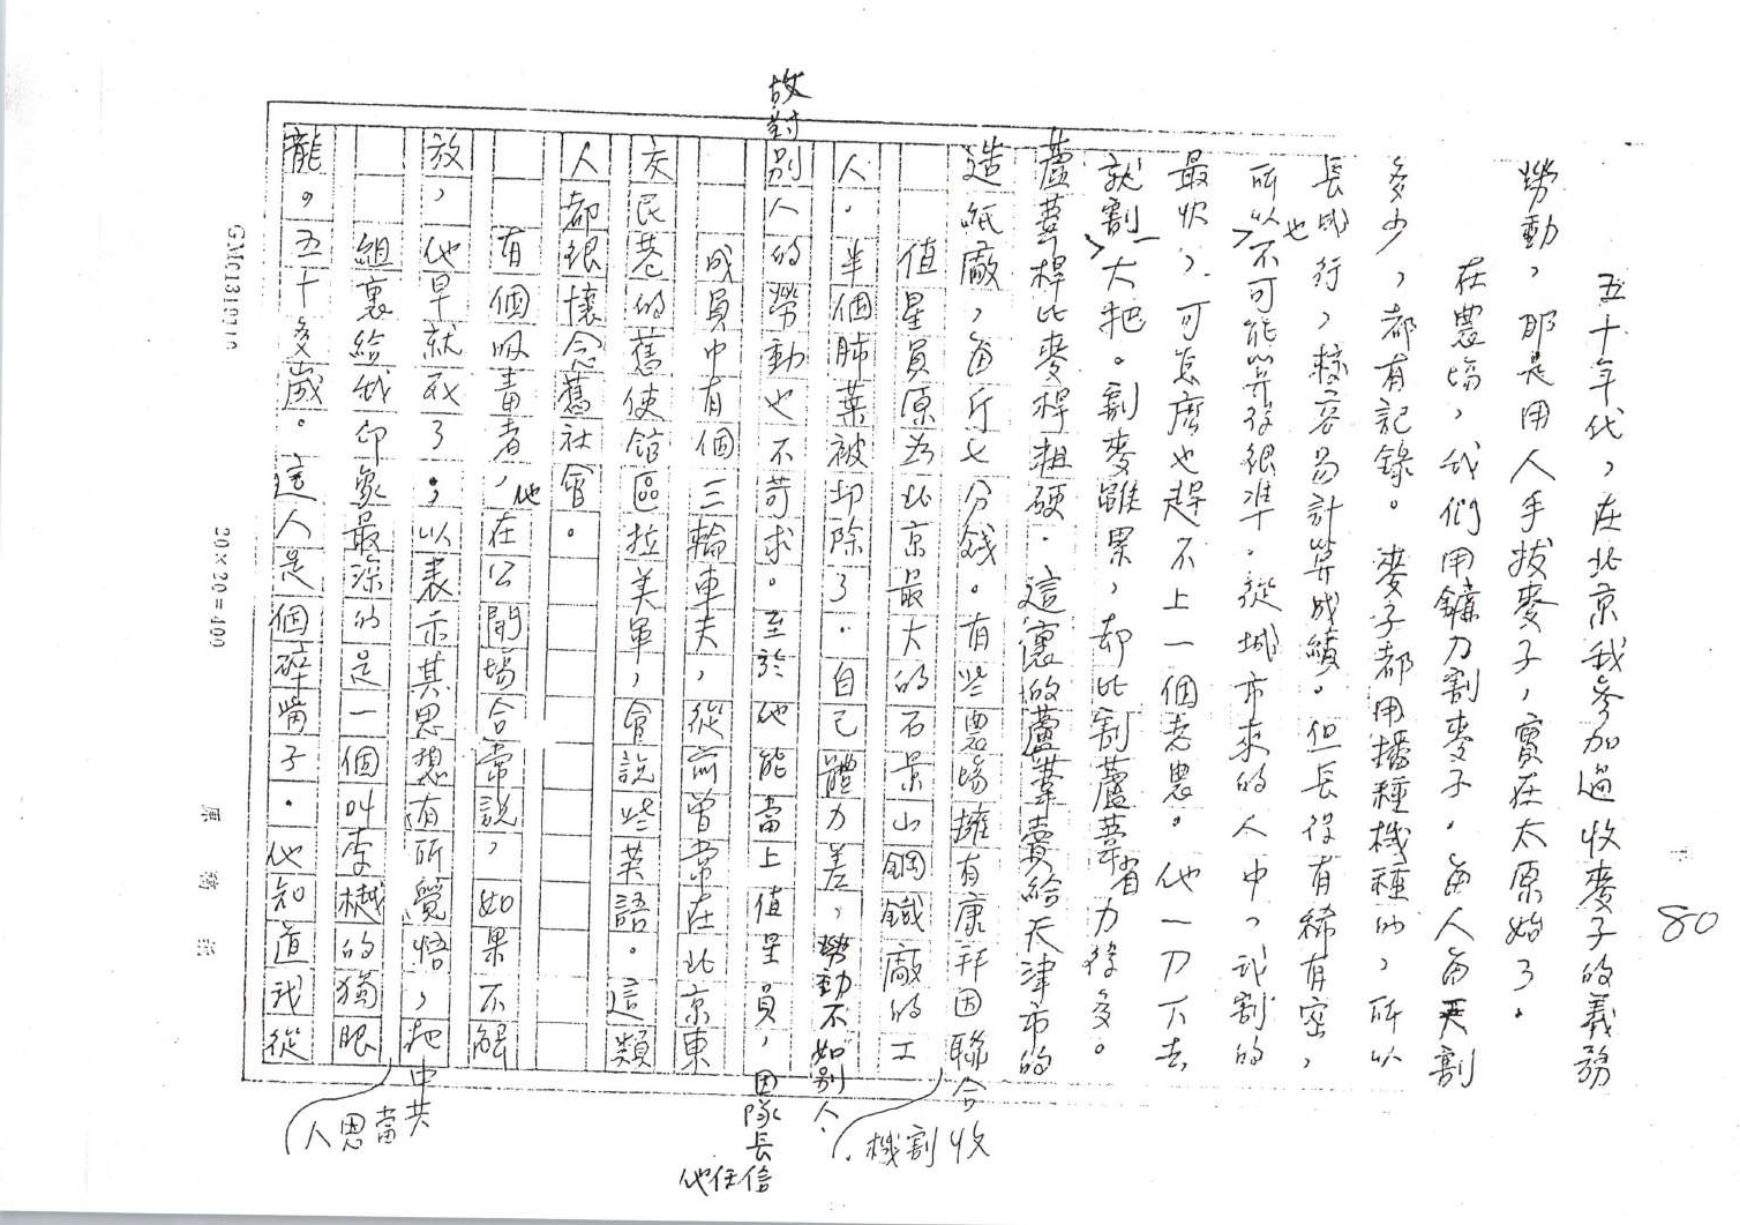 80
五十年代，在北京我參加過收麥子的義務
勞動，那是用人手拔麥子，實在太原始了。
在農場，我們用鐮刀割麥子。每人每天割
多少，都有記錄。麥子都用播種機種的，所以
長成行，較容易計算成績。但長得有稀有密，
所以也不可能算得很准。從城市來的人中，我割的
最快，可怎麽也趕不上一個老農。他一刀下去
就割一大把。割麥雖累，却比割蘆葦省力得多。
蘆葦桿比麥桿粗硬．這裏的蘆葦賣給天津市的
造紙廠，每斤七分錢。有些農場擁有康拜因聯合
收割機．
值星員原为北京最大的石景山鋼鐵廠的工
人．半個肺葉被切除了．自己體力差，勞動不如別人．
故對別人的勞動也不苛求。至於他能當上值星員，因隊長
信任他
成員中有個三輪車夫，從前曾常在北京東
交民巷的舊使舘區拉美軍，會說些英語。這類
人都很懷念舊社會。
有個吸毒者，他在公開場合常說，如果不解
放，他早就死了．，以表示其思想有所覺悟，把中共
當恩人
組裏給我印象最深的是一個叫李樾的獨眼
龍。五十多歲。這人是個碎嘴子．他知道我從
GMc131971c
20×20=400
原 稿 紙